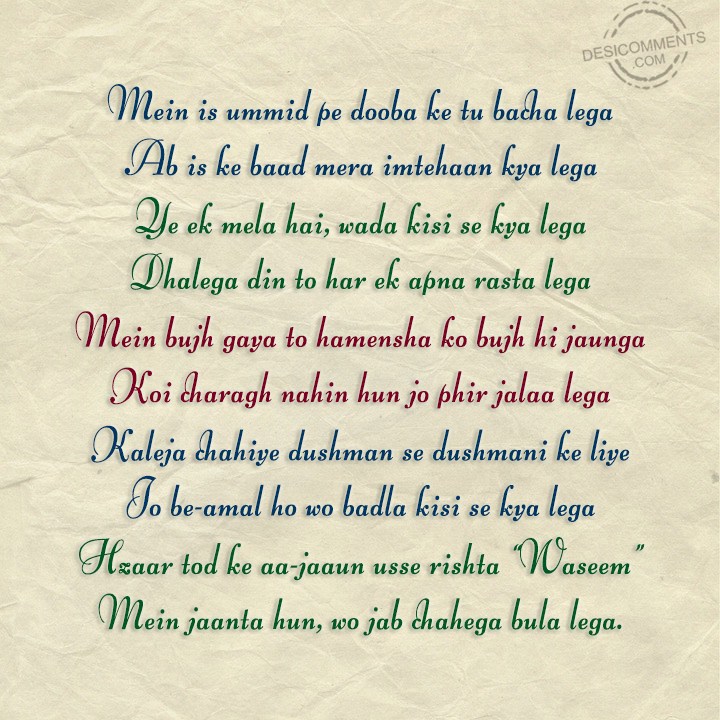 DESICOMMENTS
.COM
Mein is ummid pe dooba ke tu bacha lega
Ab is ke baad mera imtehaan kya lega
Ye ek mela hai, wada kisi se kya lega
Dhalega din to har ek apna rasta lega
Mein bujh gaya to hamensha ko bujh hi jaunga
Koi charagh nahin hun jo phir jalaa lega
Kaleja chahiye dushman se dushmani ke liye
Jo be-amal ho wo badla kisi se kya lega
Hzaar tod ke aa-jaaun usse rishta "Waseem"
Mein jaanta hun, wo jab chahega bula lega.